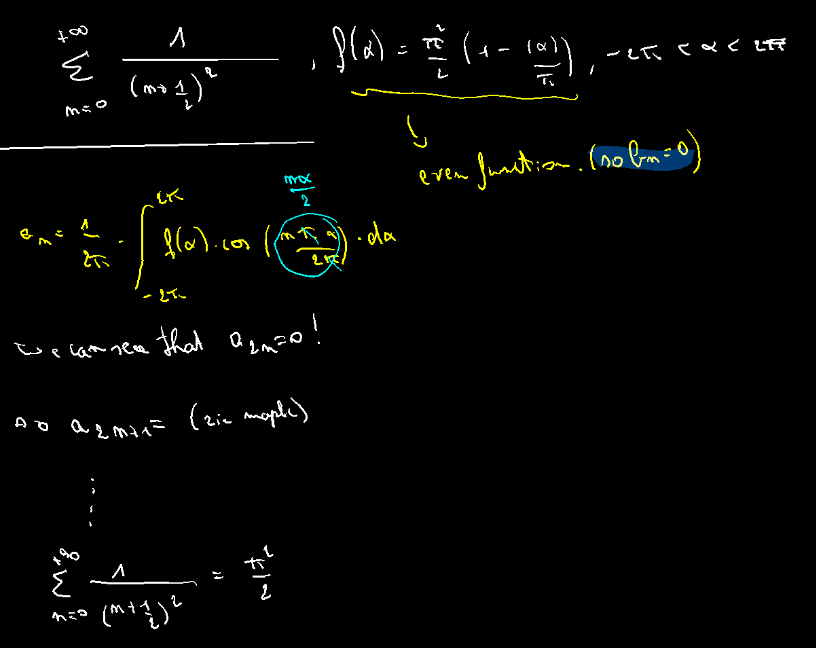 \sum_{n=0}^{+\infty} \frac{1}{(n+\frac{1}{2})^2} , f(α) = \frac{π^2}{2} (1 - \frac{|α|}{π}) , -2π < α < 2π
even function. (so b_n=0)
\frac{nα}{2}
a_n = \frac{1}{2π} \cdot \int_{-2π}^{2π} f(α) \cdot cos (\frac{nπα}{2π}) \cdot dα
we can see that a_{2n}=0!
so a_{2n+1}= (zie maple)
\sum_{n=0}^{+\infty} \frac{1}{(n+\frac{1}{2})^2} = \frac{π^2}{2}